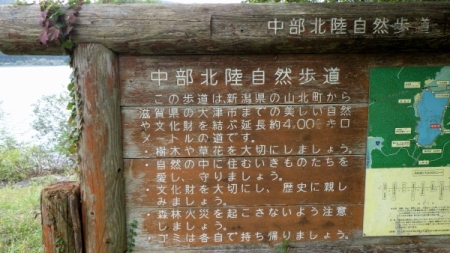 中部北陸自然歩道
中部北陸自然歩道
この歩道は、新潟県の山北町から
滋賀県の大津市までの美しい自然
や文化財を結ぶ延長約4,000キロ
メートルの道です。
・樹木や草花を大切にしましょう。
・自然の中に住むいきものたちを
愛し、守りましょう。
・文化財を大切にし、歴史に親し
みましょう。
・森林火災を起こさないよう注意
しましょう。
・ゴミは各自で持ち帰りましょう。